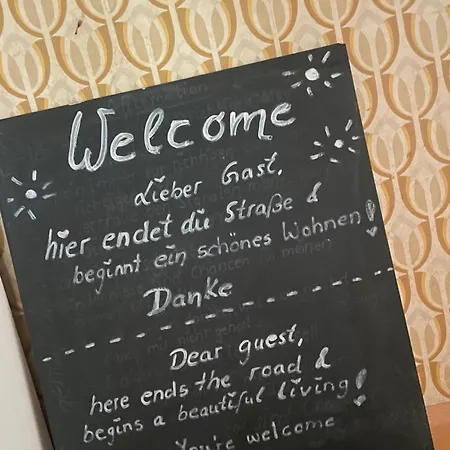 Welcome
Lieber Gast,
hier endet die Straße &
beginnt ein schönes Wohnen!
Danke
Dear guest,
here ends the road &
begins a beautiful living!
You're welcome